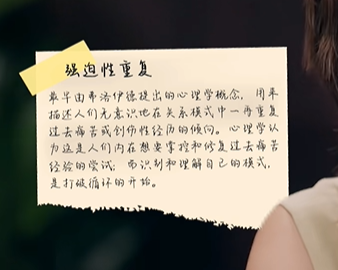 强迫性重复
最早由弗洛伊德提出的心理学概念，用来
描述人们无意识地在关系模式中一再重复
过去痛苦或创伤性经历的倾向。心理学认
为这是人们内在想要掌控和修复过去痛苦
经验的尝试；而识别和理解自己的模式，
是打破循环的开始。